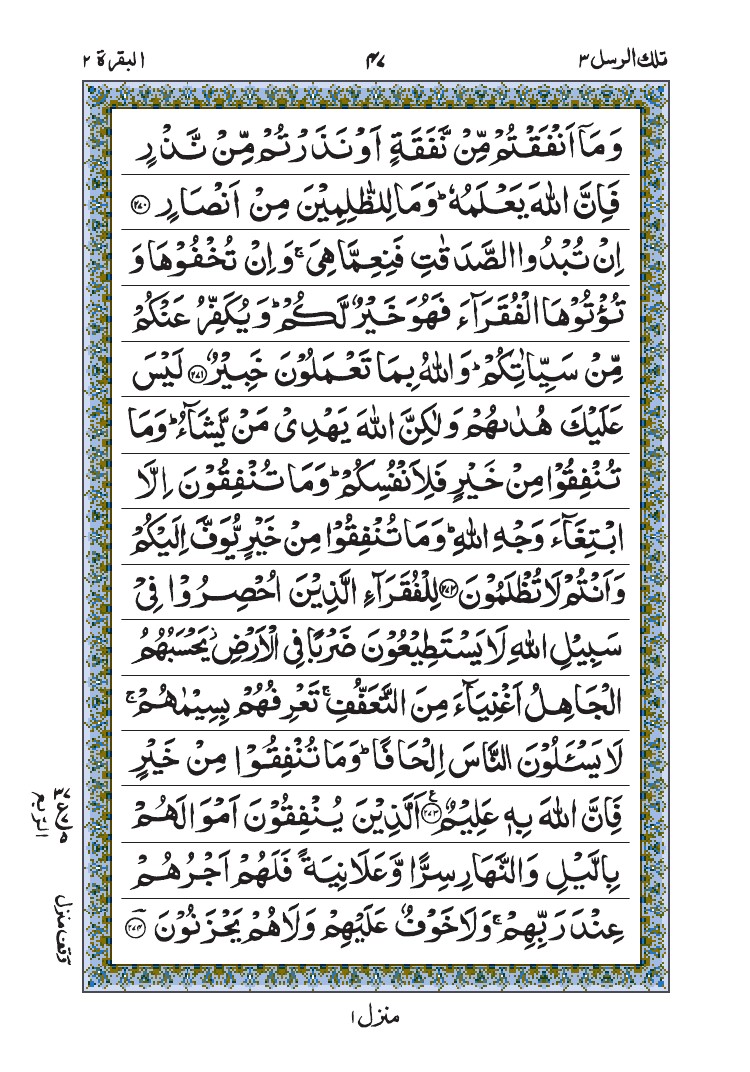 تلك الرسل ٣
٤٧
البقرة ٢
وَمَآ اَنْفَقْتُمْ مِّنْ نَّفَقَةٍ اَوْ نَذَرْتُمْ مِّنْ نَّذْرٍ
فَاِنَّ اللّٰهَ يَعْلَمُهٗ ؕ وَمَا لِلظّٰلِمِيْنَ مِنْ اَنْصَارٍ ﴿۲۷۰﴾
اِنْ تُبْدُوا الصَّدَقٰتِ فَنِعِمَّا هِىَ ۚ وَاِنْ تُخْفُوْهَا وَ
تُؤْتُوْهَا الْفُقَرَآءَ فَهُوَ خَيْرٌ لَّكُمْ ؕ وَيُكَفِّرُ عَنْكُمْ
مِّنْ سَيِّاٰتِكُمْ ؕ وَاللّٰهُ بِمَا تَعْمَلُوْنَ خَبِيْرٌ ﴿۲۷۱﴾ لَيْسَ
عَلَيْكَ هُدٰىهُمْ وَلٰكِنَّ اللّٰهَ يَهْدِىْ مَنْ يَّشَآءُ ؕ وَمَا
تُنْفِقُوْا مِنْ خَيْرٍ فَلِاَنْفُسِكُمْ ؕ وَمَا تُنْفِقُوْنَ اِلَّا
ابْتِغَآءَ وَجْهِ اللّٰهِ ؕ وَمَا تُنْفِقُوْا مِنْ خَيْرٍ يُّوَفَّ اِلَيْكُمْ
وَاَنْتُمْ لَا تُظْلَمُوْنَ ﴿۲۷۲﴾ لِلْفُقَرَآءِ الَّذِيْنَ اُحْصِرُوْا فِىْ
سَبِيْلِ اللّٰهِ لَا يَسْتَطِيْعُوْنَ ضَرْبًا فِى الْاَرْضِ ز يَحْسَبُهُمُ
الْجَاهِلُ اَغْنِيَآءَ مِنَ التَّعَفُّفِ ۚ تَعْرِفُهُمْ بِسِيْمٰهُمْ ۚ
لَا يَسْئَلُوْنَ النَّاسَ اِلْحَافًا ؕ وَمَا تُنْفِقُوْا مِنْ خَيْرٍ
فَاِنَّ اللّٰهَ بِهٖ عَلِيْمٌ ﴿۲۷۳﴾ ع اَلَّذِيْنَ يُنْفِقُوْنَ اَمْوَالَهُمْ
بِالَّيْلِ وَالنَّهَارِ سِرًّا وَّعَلَانِيَةً فَلَهُمْ اَجْرُهُمْ
عِنْدَ رَبِّهِمْ ۚ وَلَا خَوْفٌ عَلَيْهِمْ وَلَا هُمْ يَحْزَنُوْنَ ﴿۲۷۴﴾
الربع
وقف منزل
منزل ١